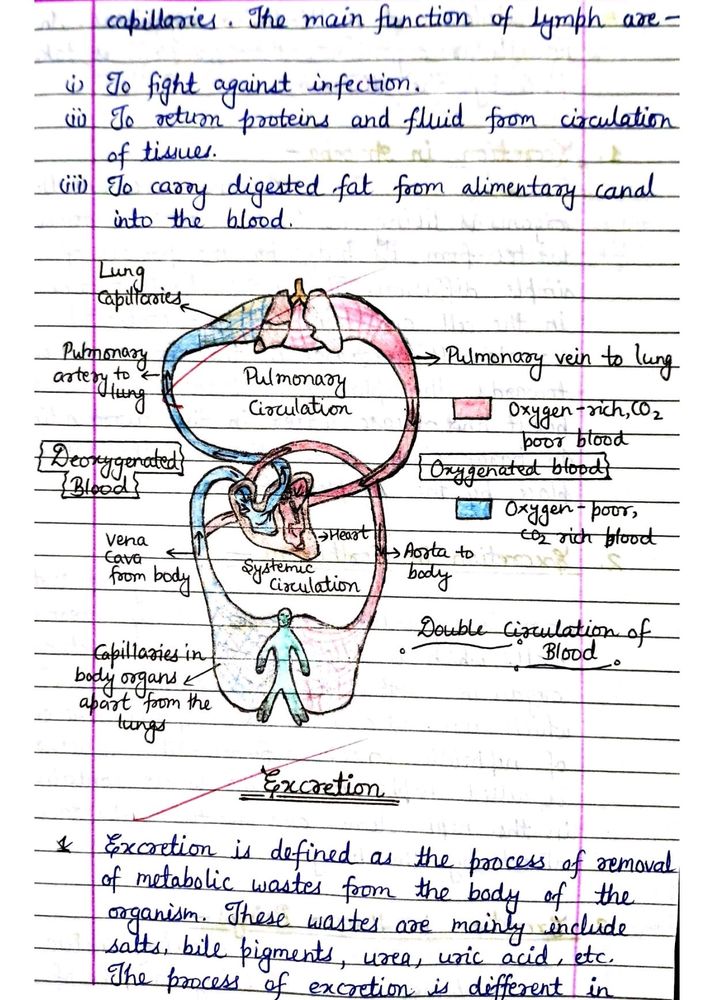 capillaries. The main function of lymph are-
(i) To fight against infection.
(ii) To return proteins and fluid from circulation
of tissues.
(iii) To carry digested fat from alimentary canal
into the blood.
Lung
Capillaries
Pulmonary
artery to
lung
Pulmonary
Circulation
Pulmonary vein to lung
Oxygen-rich, CO2
poor blood
Deoxygenated
Blood
Oxygenated blood
Oxygen-poor,
CO2 rich blood
Heart
Vena
Cava
from body
Systemic
Circulation
Aorta to
body
Double Circulation of
Blood
Capillaries in
body organs
apart from the
lungs
Excretion
Excretion is defined as the process of removal
of metabolic wastes from the body of the
organism. These wastes are mainly include
salts, bile pigments, urea, uric acid, etc.
The process of excretion is different in